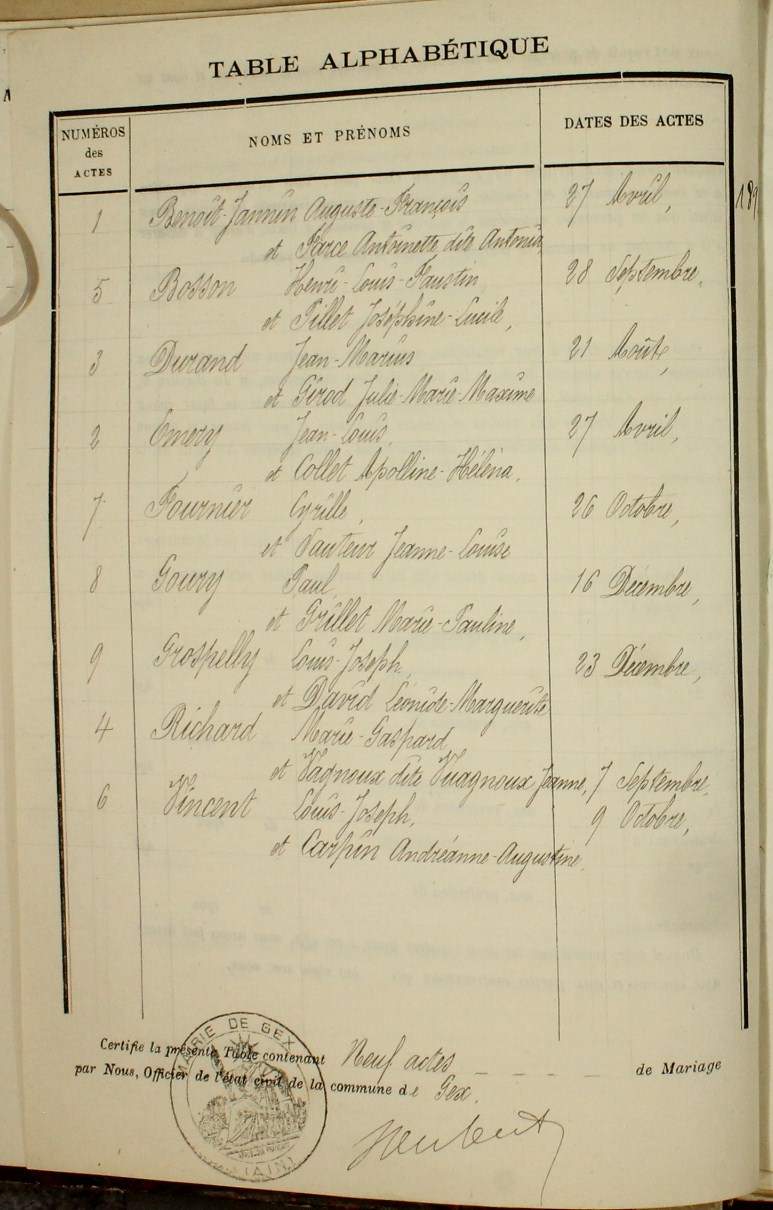 TABLE ALPHABÉTIQUE
NUMÉROS
des
ACTES
NOMS ET PRÉNOMS
DATES DES ACTES
1 Benoît-Jannin Auguste-François 27 Avril, 189
et Farce Antoinette dite Antonia
5 Bosson Henri-Louis-Faustin 28 Septembre,
et Pillet Joséphine-Lucile,
3 Durand Jean-Marius 21 Août,
et Girod Julie-Marie-Maxime
2 Emery Jean-Louis, 27 Avril,
et Collet Apolline-Héléna,
7 Fournier Cyrille, 26 Octobre,
et Vauteur Jeanne-Louise
8 Goury Paul, 16 Décembre,
et Grillet Marie-Pauline,
9 Grospelly Louis-Joseph, 23 Décembre,
et David Léonide-Marguerite
4 Richard Marie-Gaspard
et Vagnoux dite Vuagnoux Jeanne, 7 Septembre,
6 Vincent Louis-Joseph, 9 Octobre,
et Carpin Andréanne-Augustine.
Certifie la présente Table contenant Neuf actes de Mariage
par Nous, Officier de l'état civil de la commune de Gex.
MAIRIE DE GEX
(AIN)